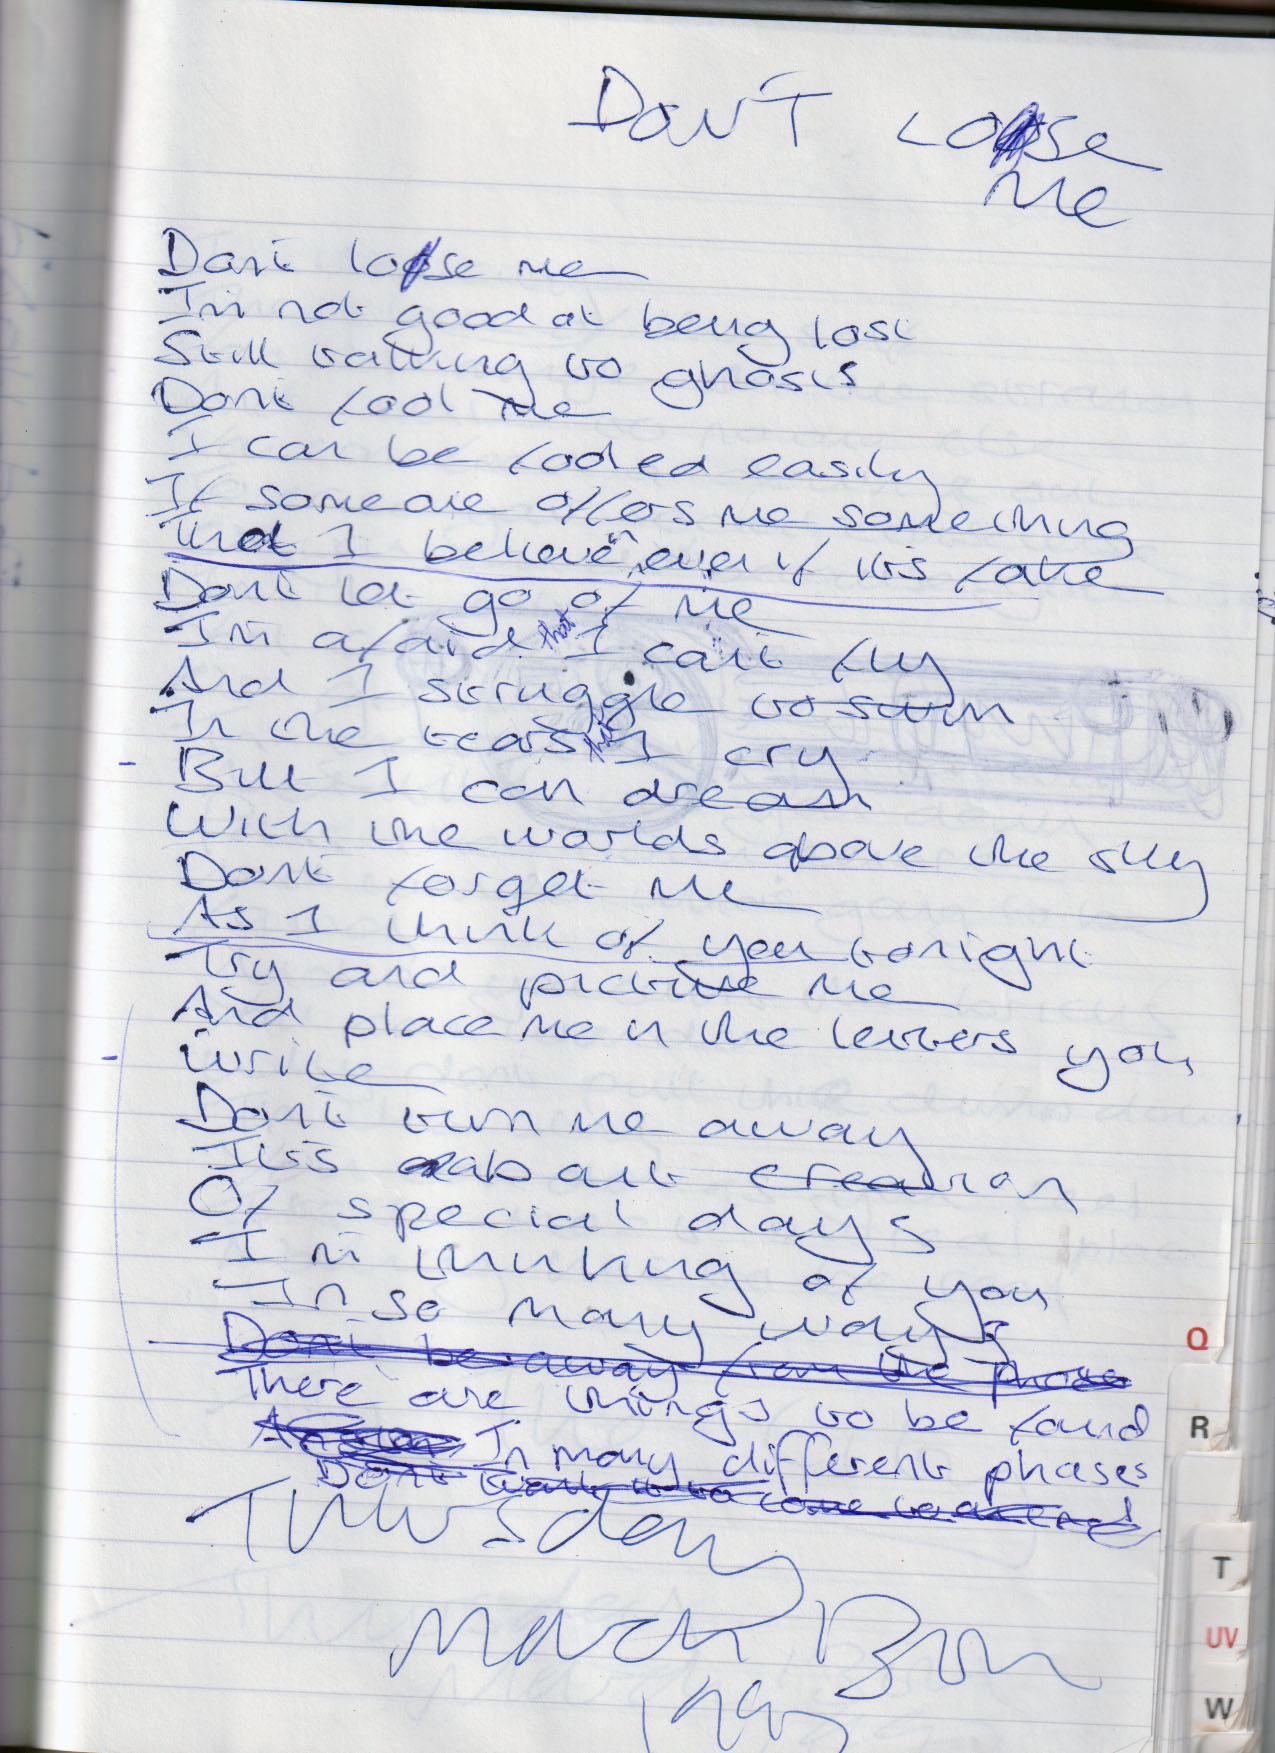 DON'T LOSE
ME
Dont lose me
Im not good at being lost
Still talking to ghosts
Dont fool me
I can be fooled easily
If someone offers me something
That I believe in even if its fake
Dont let go of me
Im afraid that I cant fly
And I struggle to swim
In the tears that I cry
But I can dream
With the worlds above the sky
Dont forget me
As I think of you tonight
Try and picture me
And place me in the letters you
write
Dont turn me away
Its about creation
Of special days
Im thinking of you
In so many ways
Dont be away from the phone
There are things to be found
In many different phases
Dont
Thursday
March
Q
R
T
UV
W